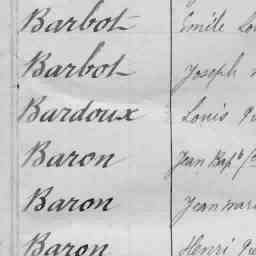 Barbot Emile
Barbot Joseph
Bardoux Louis
Baron Jean Bapt
Baron Jean Mari
Baron Henri